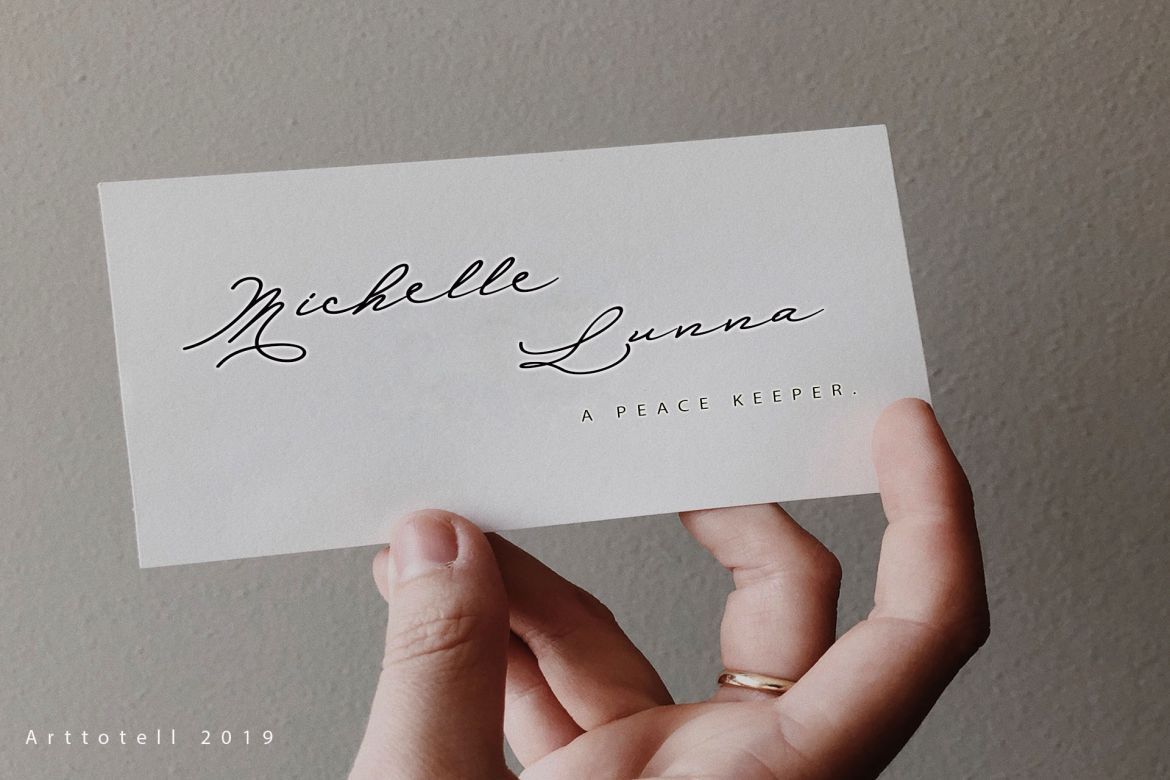 Michelle
Lunna
A PEACE KEEPER.
Arttotell 2019